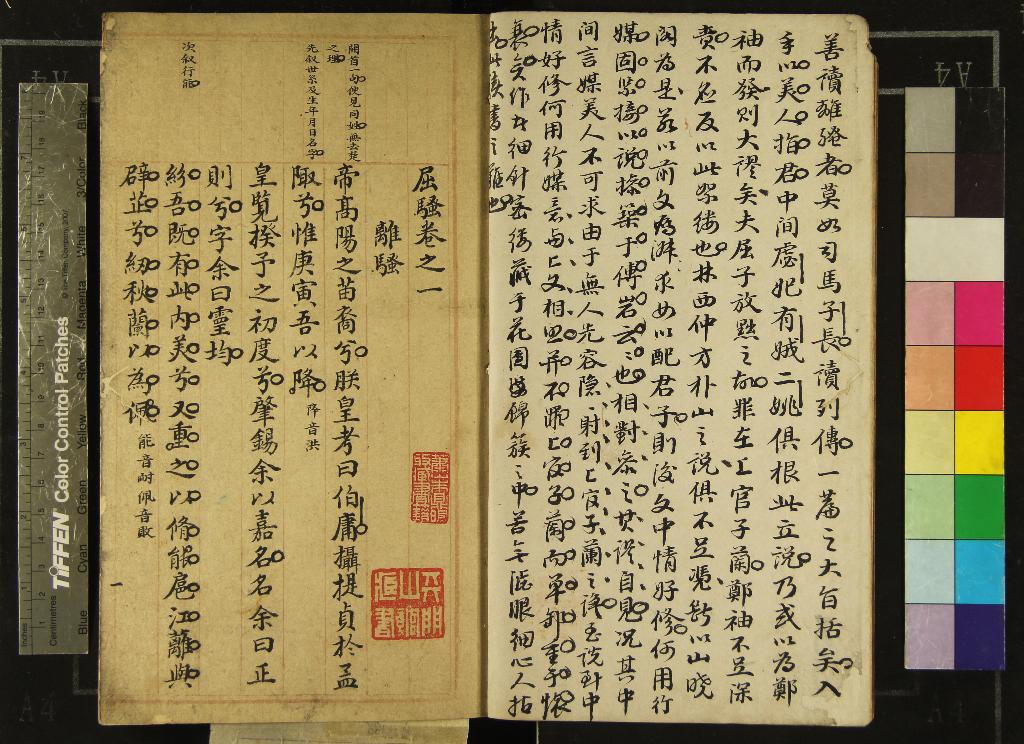 善讀離騷者莫如司馬子長讀列傳一篇之大旨括矣入
手以美人指君中間處妃有娀二姚俱根此立說乃或以為鄭
袖而發則大謬矣大屈子放黜之故罪在上官子蘭鄭袖不足深
責不應反以此累縷也林西仲方朴山之說俱不足憑斷以山曉
閣為是蓋以前文為渺求女以配君子則後文中情好修何用行
媒固紧接以說操築于傅岩云云也相對泰之其謬自見况其中
間言媒美人不可求由于無人先容隱射到上官子蘭之諍至說到中
情好修何用行媒意与上文相思并不蹈上官子蘭而單卸重予懷
襄矣作者細針密縷藏于花團錦簇之中苦無隻眼細心人拈
出此讀書之難也
屈騷卷之一
離騷
帝高陽之苗裔兮朕皇考曰伯庸攝提貞於孟
陬兮惟庚寅吾以降 降音洪
皇覽揆予之初度兮肇錫余以嘉名名余曰正
則兮字余曰靈均
紛吾既有此內美兮又重之以脩能扈江蘺與
辟芷兮紉秋蘭以為佩 能音耐佩音
開首一句便見同姓無去楚
之理
先叙世系及生年月日名字
次叙行能
一
TIFFEN Color Control Patches
© The Tiffen Company, 2007
Centimetres
Inches
Blue
Cyan
Green
Yellow
Red
Magenta
White
3/Color
Black
A4